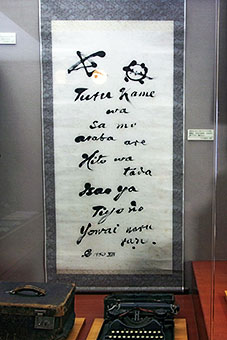 Turu Kame
wa
sa mo
araba are
Hito wa
tada
Isao ya
Tiyo no
Yowai naru
ran.